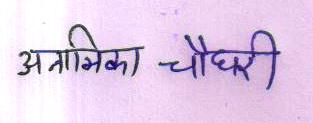 अनामिका चौधरी